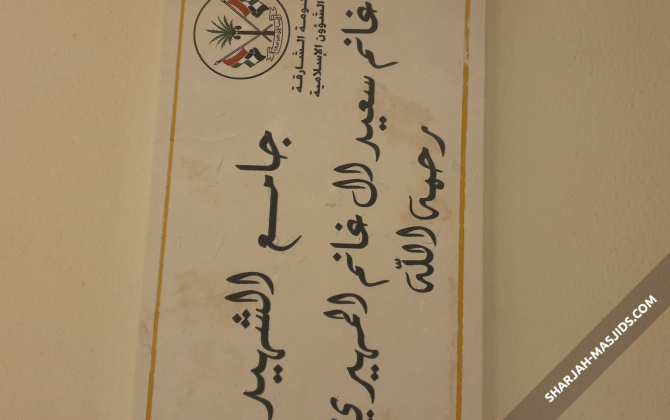 حكومة الشارقة
الشؤون الإسلامية
جامع الشهيد
غانم سعيد ال غانم المهيري
رحمه الله
SHARJAH-MASJIDS.COM